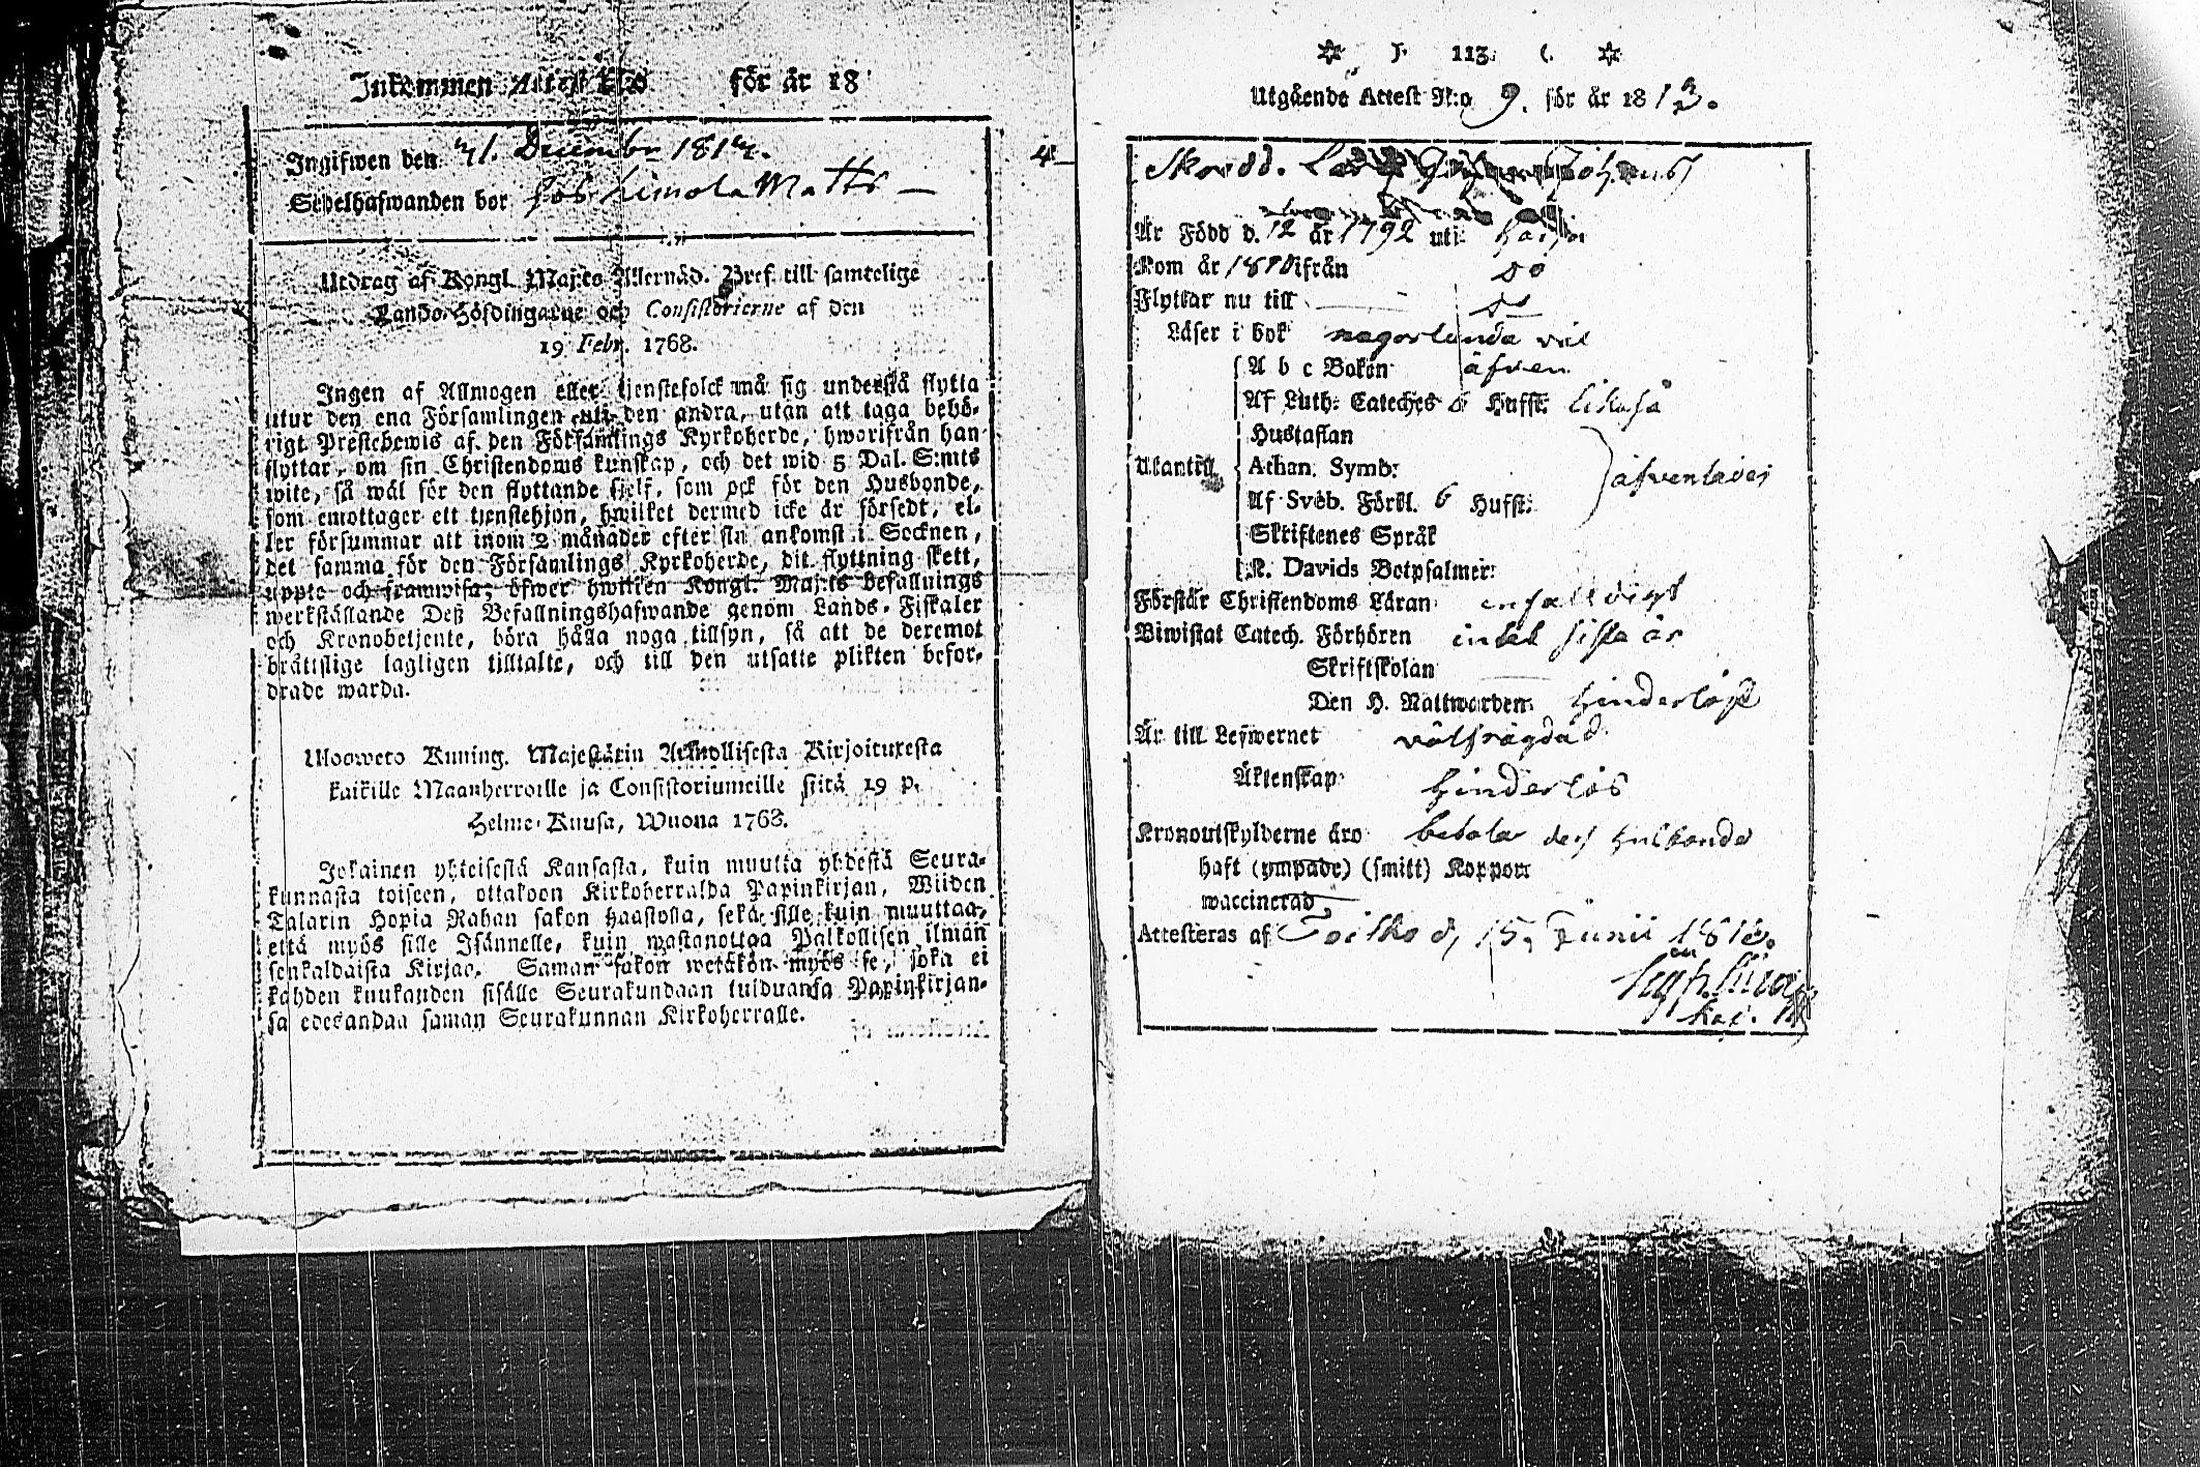 Inkommen Attest N:o för år 18
Ingifwen den 31. Decembr 1813.
Sedelhafwanden bor hos Matts —
Utdrag af Kongl. Maj:ts Allernåd. Bref till samtelige
Lands-Höfdingarne och Consistorierne af den
19 Febr. 1768.
Ingen af Allmogen eller tjenstefolck må sig understå flytta
utur den ena Församlingen uti den andra, utan att taga behö-
rigt Prestebewis af den Församlings Kyrkoherde, hworifrån han
flyttar, om sin Christendoms kunskap, och det wid 5 Dal. S:mts
wite, så wäl för den flyttande sjelf, som ock för den Husbonde,
som emottager ett tjenstehjon, hwilket dermed icke är försedt, el-
ler försummar att inom 2 månader efter sin ankomst i Socknen,
det samma för den Församlings Kyrkoherde, dit flyttning skett,
uppte och framwisa; öfwer hwilken Kongl. Maj:ts befallnings
werkställande Deß Befallningshafwande genom Lands-Fiskaler
och Kronobetjente, böra hålla noga tillsyn, så att de deremot
bråttslige lagligen tilltalte, och till den utsatte plikten befor-
drade warda.
Ulosweto Kuning. Majestätin Armollisesta Kirjoituxesta
kaikille Maanherroille ja Consistoriumeille siitä 19 p.
Helme-Kuusa, Wuona 1768.
Jokainen yhteisestä Kansasta, kuin muutta yhdestä Seura-
kunnasta toiseen, ottakoon Kirkoherralda Papinkirjan, Wiiden
Talarin Hopia Rahan sakon haastolla, sekä sille kuin muuttaa,
että myös sille Isännelle, kuin wastanottaa Palkollisen ilman
senkaldaista Kirjaa. Saman sakon wetäkön myös se, joka ei
kahden kuukauden sisälle Seurakundaan tulduansa Papinkirjan-
sa edesandaa saman Seurakunnan Kirkoherralle.
4
☆ ). 113. (. ☆
Utgående Attest N:o 9. för år 1813.
Skrädd.
Är Född d. 12 år 1792 uti
Kom år 1810 ifrån do
Flyttar nu till do
Läser i bok någorlunda väl
A b c Boken äfven
Af Luth. Cateches 6 Hufst. likaså
Hustaflan
Utantill Athan. Symb: äfvenledes
Af Sveb. Förkl. 6 Hufst:
Skriftenes Språk
K. Davids Botpsalmer:
Förstår Christendoms Läran enfalldigt
Biwistat Catech. Förhören intet sista år
Skriftskolan
Den H. Nattwarden hinderlöst
Är till Lefwernet välfrägdad
Äktenskap hinderlös
Kronoutskylderne äro betalar dess husbonde
haft (ympade) (smitt) Koppor
waccinerad
Attesteras af Toilko d. 15. Junii 1813.